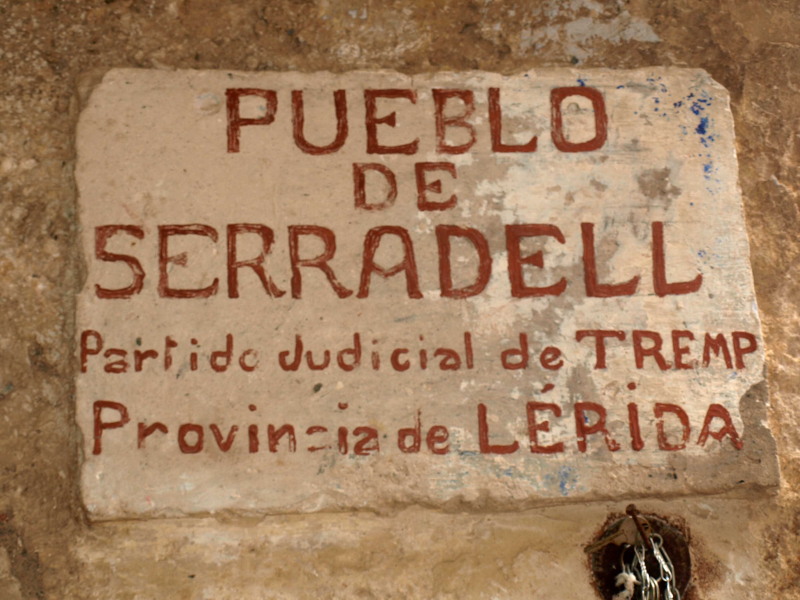 PUEBLO
DE
SERRADELL
Partido Judicial de TREMP
Provincia de LÉRIDA